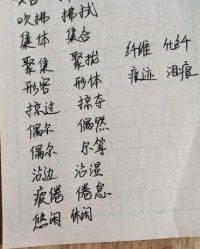 吹拂 拂拭
集体 集合
聚集 聚拢 纤维 化纤
形容 形体 痕迹 泪痕
掠过 掠夺
偶尔 偶然
偶尔 尔等
沾边 沾湿
疲倦 倦息
悠闲 休闲